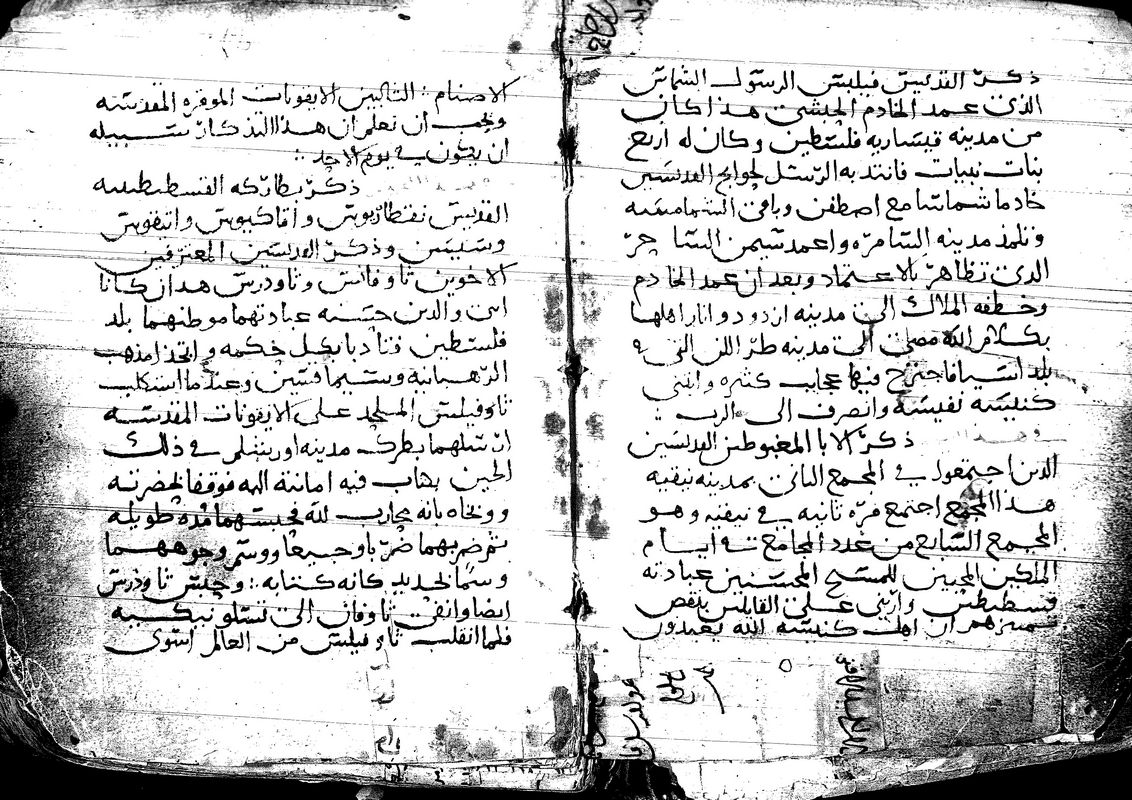 ذكر القديس فيلبس الرسول الشماس
الذي عمد الخادم الحبشي هذا كان
من مدينه قيساريه فلسطين وكان له اربع
بنات نبيات فانتدبه الرسل لحوايج القديسين
خادما شماسا مع اصطفن وباقي الشمامسه
وتلمذ مدينه السامره واعمد سيمن الساحر
الذي تظاهر بالاعتماد وبعد ان عمد الخادم
وخطفه الملاك الى مدينه ازدود وانار اهلها
بكلام الله مضى الى مدينه طرالن التي
بلد اسيا فاجترح فيها عجايب كثيره وابتنى
كنيسه نفيسه وانصرف الى الرب
ذكر الابا المغبوطين القديسين
الذين اجتمعوا في المجمع الثاني بمدينه نيقيه
هذا المجمع اجتمع مره ثانيه في نيقيه وهو
المجمع السابع من عدد المجامع في ايام
الملكين المحبين للمسيح المحسنين عبادته
قسطنطين وارني على القايلين بنقص
تمييزهم ان اهل كنيسه الله يعبدون
الاصنام الثالبين الايقونات الموقره المقدسه
ويجب ان نعلم ان هذا التذكار سبيله
ان يكون في يوم الاحد
ذكر بطاركه القسطنطينيه
القديس نقطاريوس واقاكيوس واتيقوس
وسيسن وذكر القديسين المعترفين
الاخوين تاوفانس وتاودرس هدان كانا
ابني والدين حسنه عبادتهما موطنهما بلد
فلسطين فتادبا بكل حكمه واتخذا مذهب
الرهبانيه وسيما قسين وعندما استكلب
تاوفيلس الملحد على الايقونات المقدسه
ارسلهما بطرك مدينه اورشليم في ذلك
الحين بكتاب فيه امانة الهه فوقفا بحضرته
ووبخاه بانه محارب لله فحبسهما مده طويله
ثم ضربهما ضربا وجيعا ووسم وجوههما
وسما بحديد كانه كتابه وحبس تاودرس
ايضا وانفى تاوفان الى تسلونيكيه
فلما انقلب تاوفيلس من العالم استوى